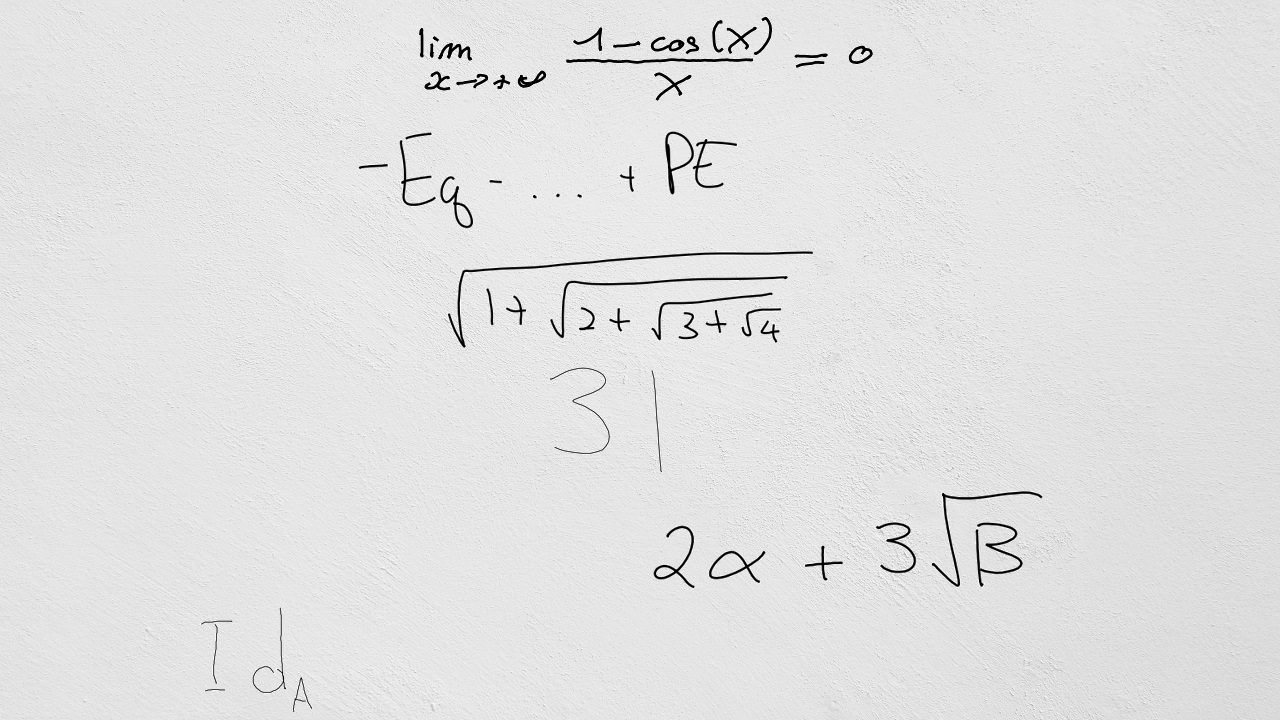 lim x→+∞ (1-cos(x))/x = 0
-Eq - ... + PE
√(1+√(2+√(3+√4)))
31
2α + 3√β
Id_A